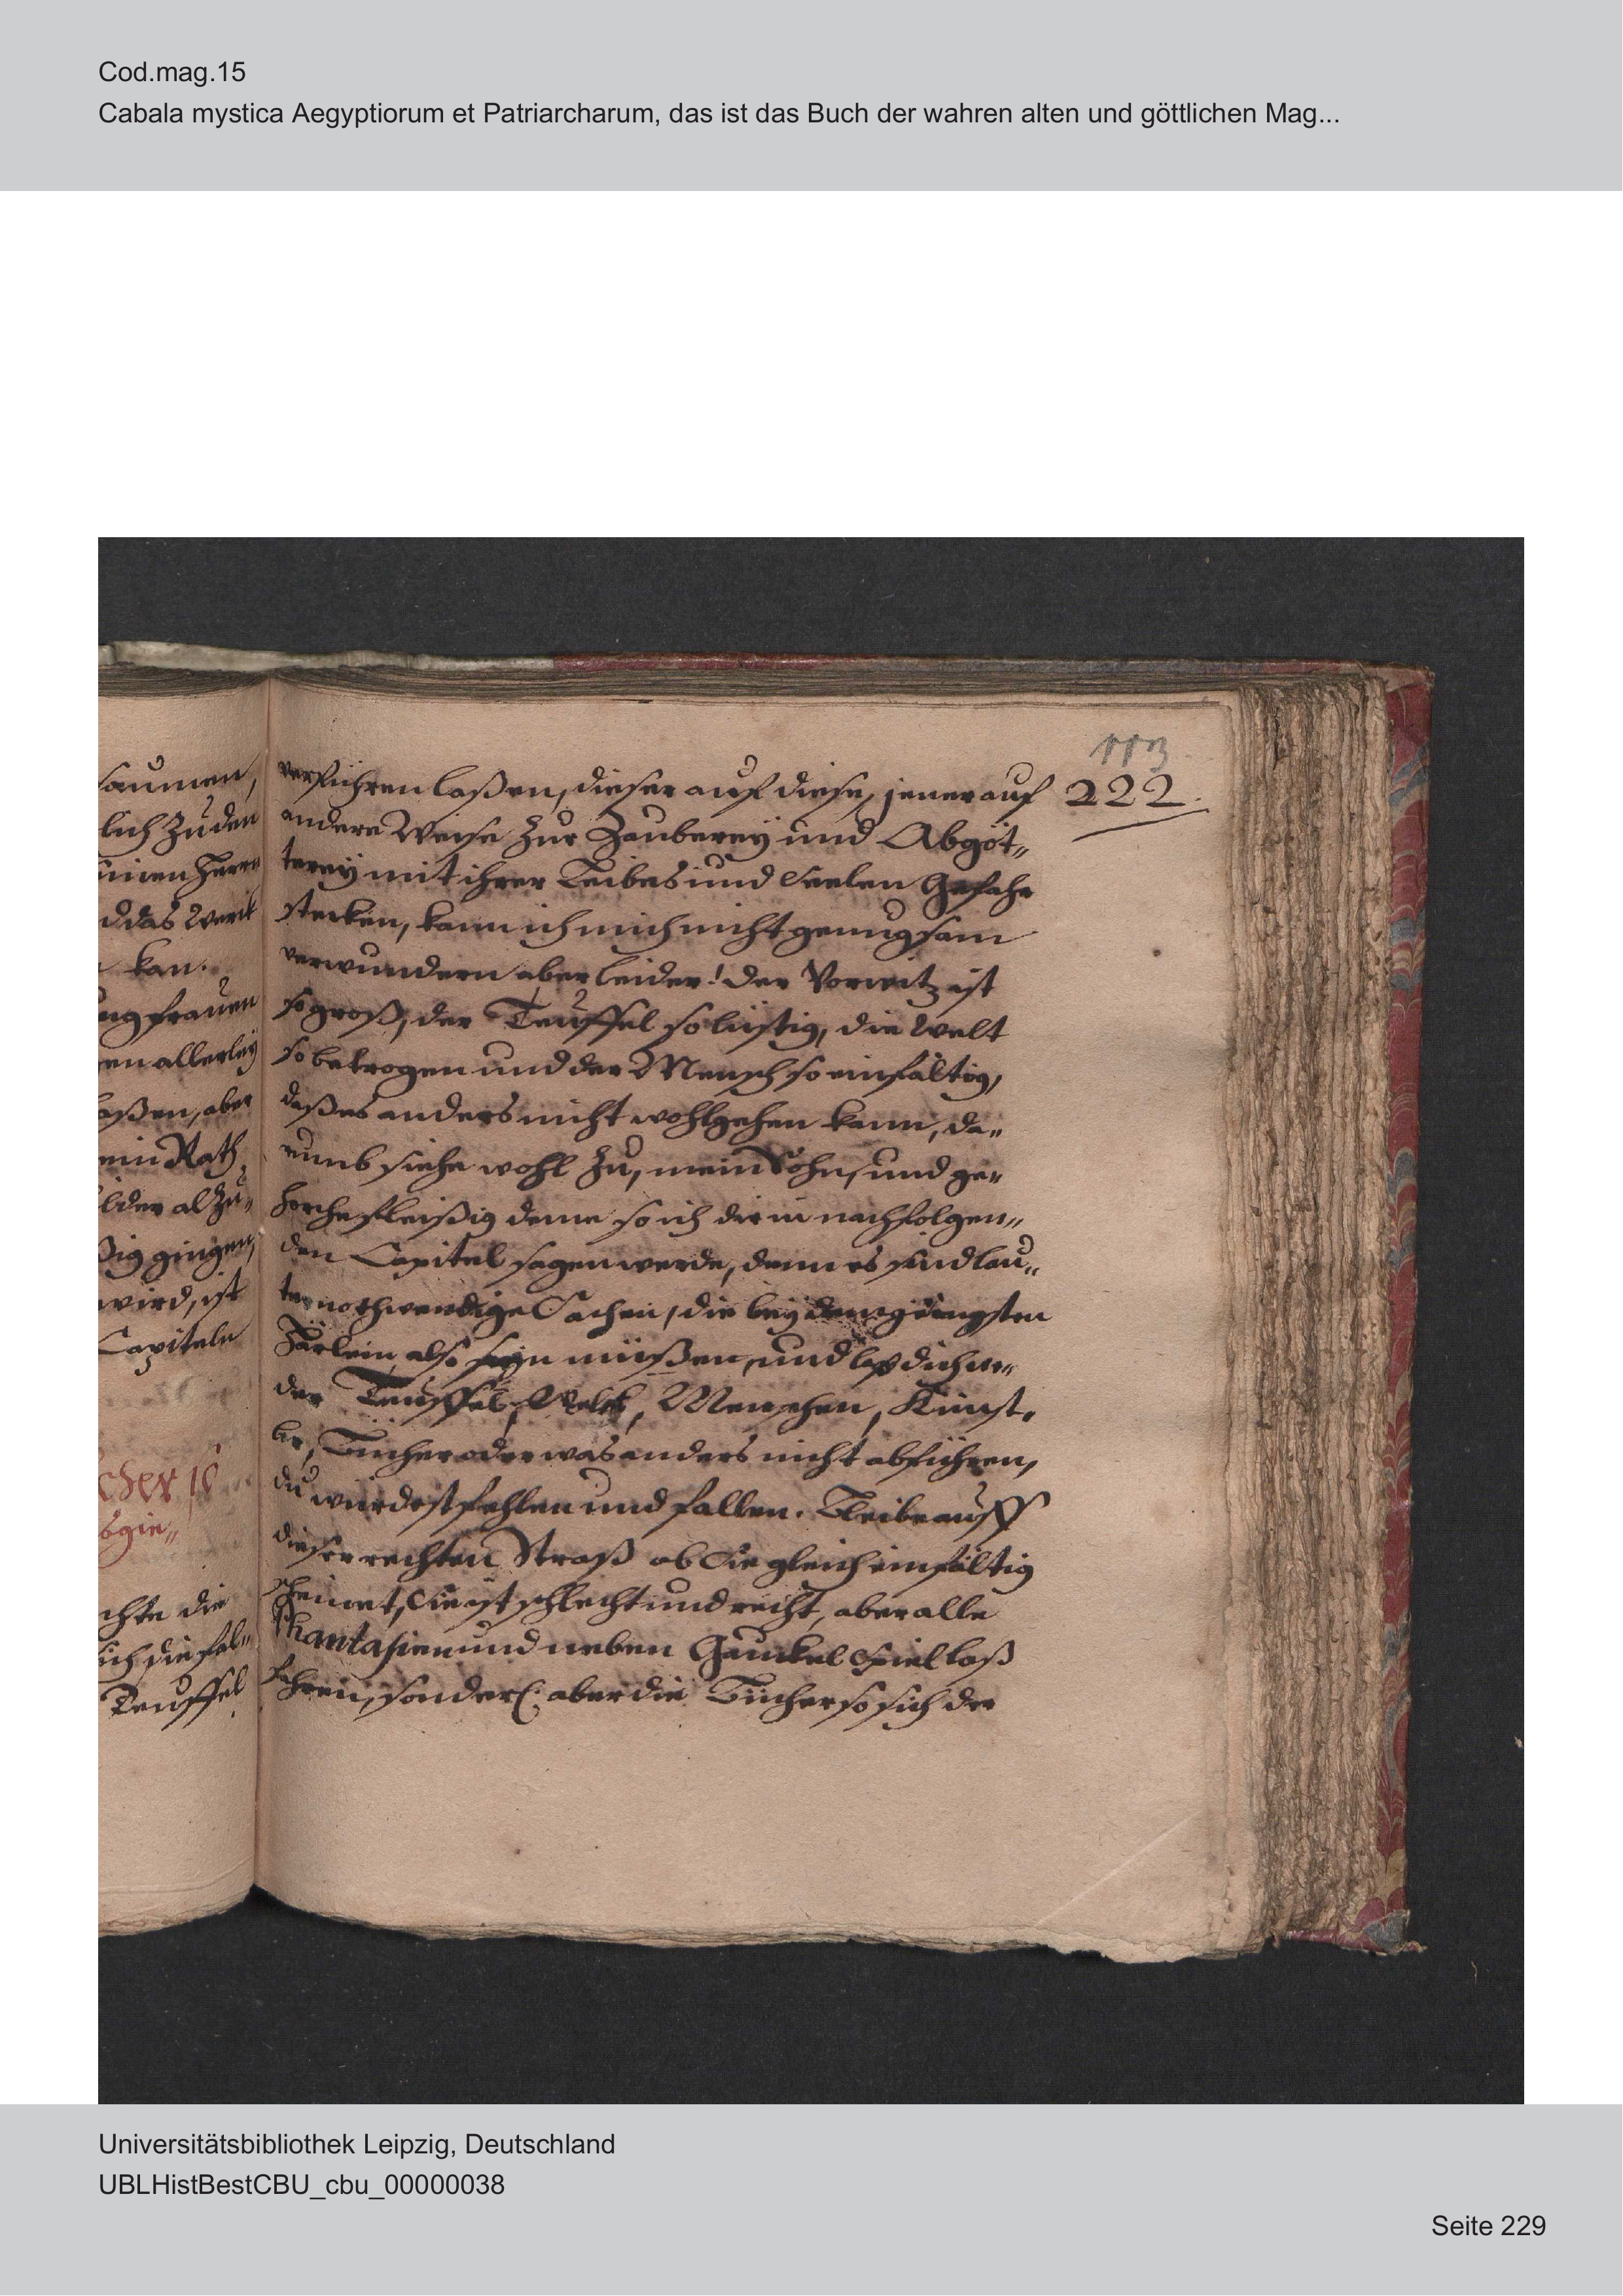 Cod.mag.15
Cabala mystica Aegyptiorum et Patriarcharum, das ist das Buch der wahren alten und göttlichen Mag...
113
222.
saumen,
lich zu den
Herrn
das Werk
kan.
ngfrauen
en allerley
aßen, aber
ein Rath
ilder alzu„
ßig gingen,
wird, ist
Capiteln
chte die
sich die fal„
Teuffel
verführen laßen, dieser auf diese, jener auf
andere Weise zur Zauberey und Abgöt„
terey mit ihrer Leibes und Seelen Gefahr
stecken, kann ich mich nicht genugsam
verwundern aber leider! der Vorwitz ist
so groß, der Teuffel so listig, die Welt
so betrogen und der Mensch so einfältig,
daß es anders nicht wohl gehen kann, da„
rumb siehe wohl zu, mein Sohn, und ge„
horche fleißig deme so ich dir in nachfolgen„
den Capitel sagen werde, denn es sind lau„
ter nothwendige Sachen, die bey dem gringsten
Härlein also seyn müßen, und laß dich we„
der Teuffel, Welt, Menschen, Künst,
ler, Bücher oder was anders nicht abführen,
du würdest fehlen und fallen. Bleibe auff
dieser rechten Straß ob Sie gleich einfältig
scheinet, Sie ist schlecht und recht, aber alle
Phantasien und neben Gauckel Spiel laß
fahren, sonderl. aber die Bücher so sich der
Universitätsbibliothek Leipzig, Deutschland
UBLHistBestCBU_cbu_00000038
Seite 229